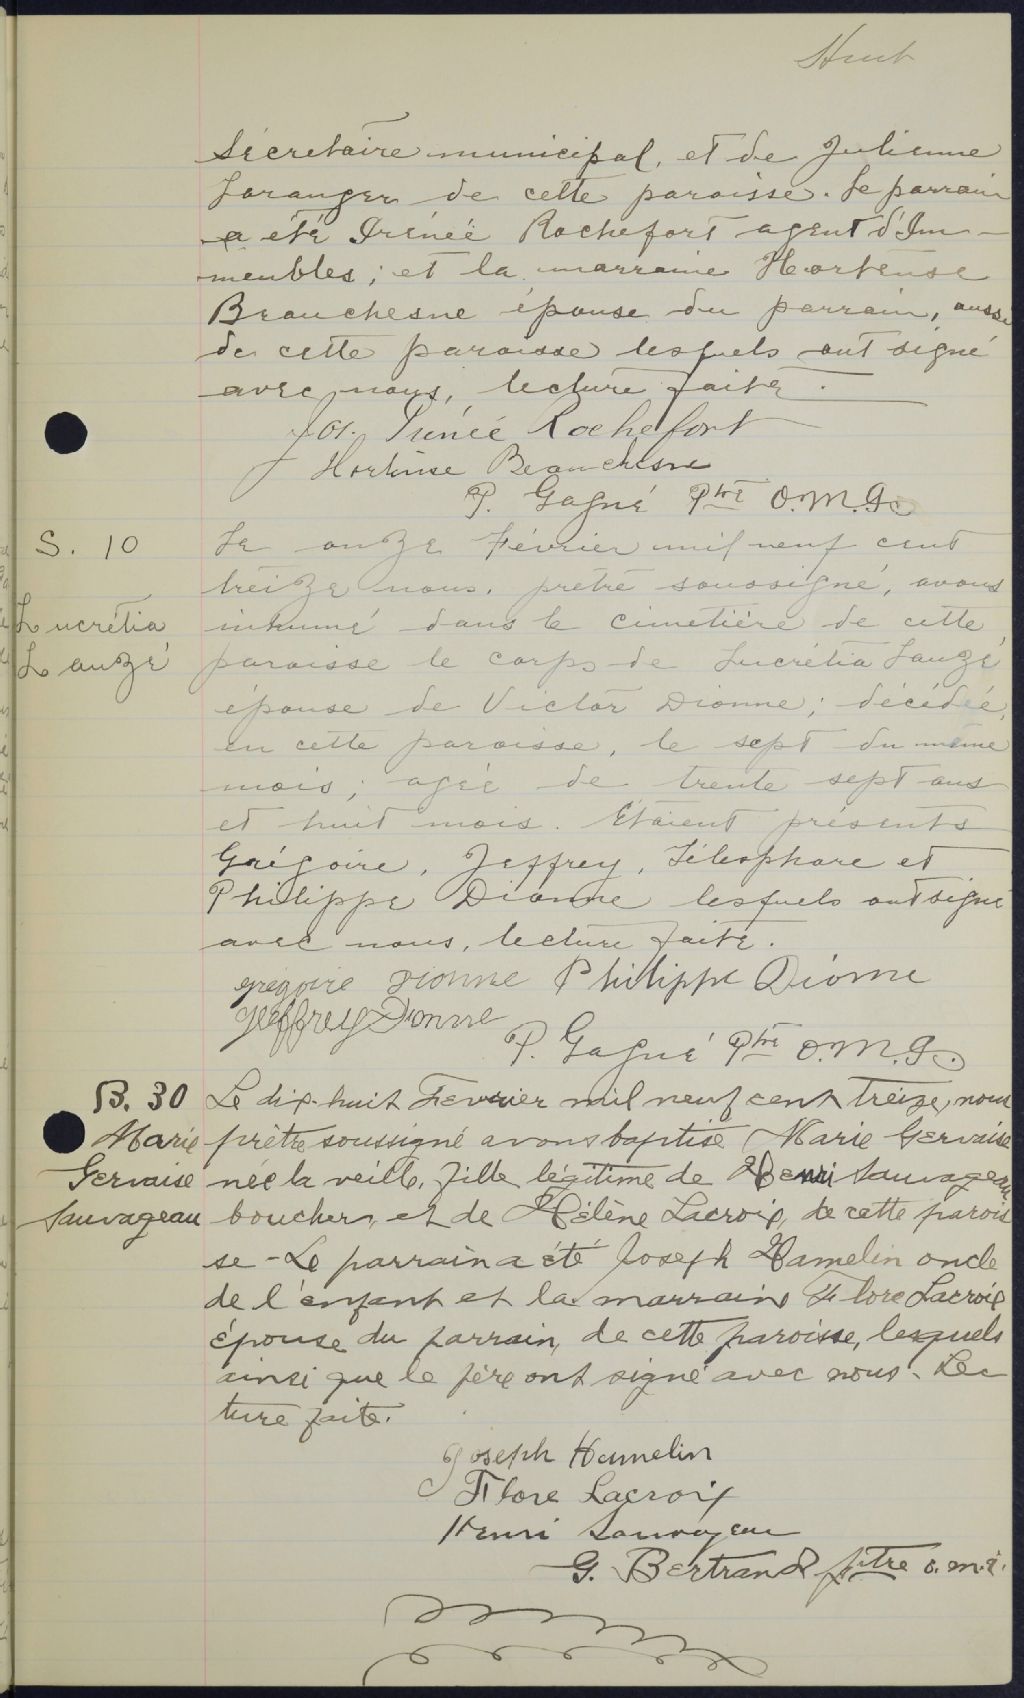 Huit
Sécretaire municipal, et de Julienne
Laranger de cette paroisse. Le parrain
a été Irénéé Rochefort agent d'Im-
meubles; et la marraine Hortense
Beauchesne épouse du parrain, aussi
de cette paroisse lesquels ont signé
avec nous, lecture faite.
Jos. Irénée Rochefort
Hortense Beauchesne
P. Gagné Ptre O.M.I.
S. 10
Lucrétia
Lauzé
Le onze Février mil neuf cent
treize nous, prêtre soussigné, avons
inhumé dans le cimetière de cette
paroisse le corps de Lucrétia Lauzé
épouse de Victor Dionne; décédée,
en cette paroisse, le sept du même
mois; agée de trente sept ans
et huit mois. Etaient présents
Grégoire, Jeffrey, Télesphore et
Philippe Dionne lesquels ont signé
avec nous, lecture faite.
Grégoire Dionne Philippe Dionne
Jeffrey Dionne
P. Gagné Ptre O.M.I.
B. 30
Marie
Gervaise
Sauvageau
Le dix-huit Fevrier mil neuf cent treize, nous
prêtre soussigné avons baptisé Marie Gervaise
née la veille, fille légitime de Henri Sauvageau
boucher, et de Hélène Lacroix, de cette parois
se - Le parrain a été Joseph Hamelin oncle
de l'enfant et la marraine Flore Lacroix
épouse du parrain, de cette paroisse, lesquels
ainsi que le père ont signé avec nous. Lec
ture faite.
Joseph Hamelin
Flore Lacroix
Henri Sauvageau
G. Bertrand ptre o.m.i.